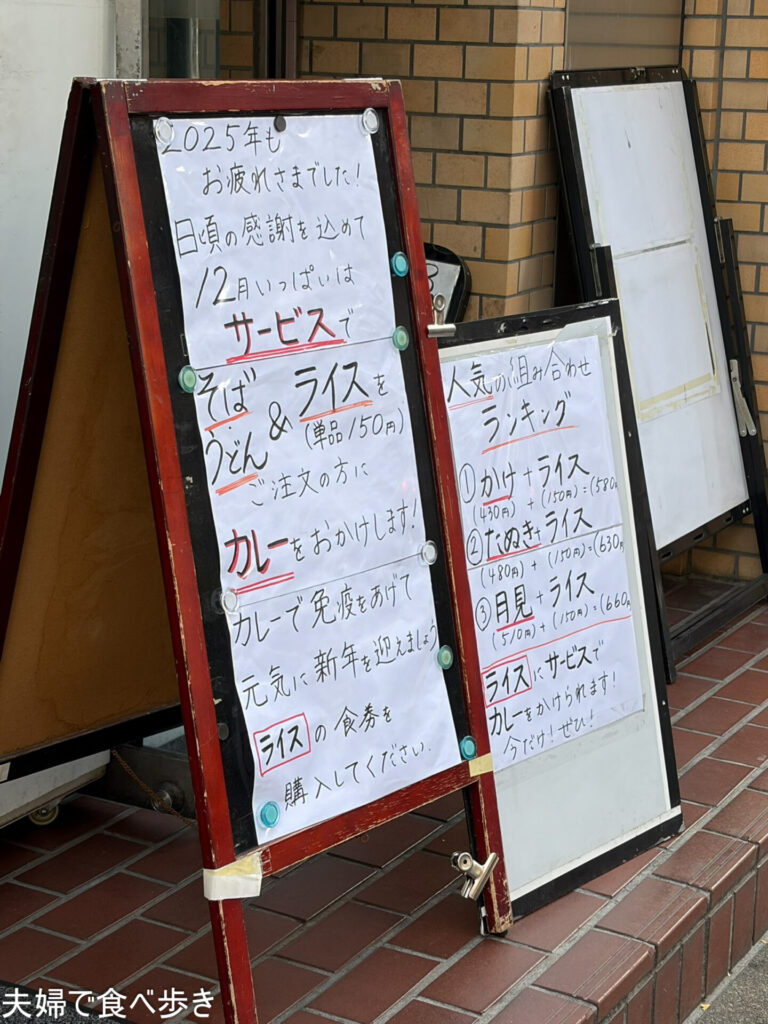 2025年も
お疲れさまでした!
日頃の感謝を込めて
12月いっぱいは
サービスで
そば
うどん
&
ライスを
(単品150円)
ご注文の方に
カレーをおかけします!
カレーで免疫をあげて
元気に新年を迎えましょう
ライスの食券を
購入してください.
人気の組み合わせ
ランキング
①かけ+ライス
(430円)+(150円)=(580
②たぬき+ライス
(480円)+(150円)=(630円
③月見+ライス
(510円)+(150円)=(660円
ライスにサービスで
カレーをかけられます!
今だけ!ぜひ!
夫婦で食べ歩き